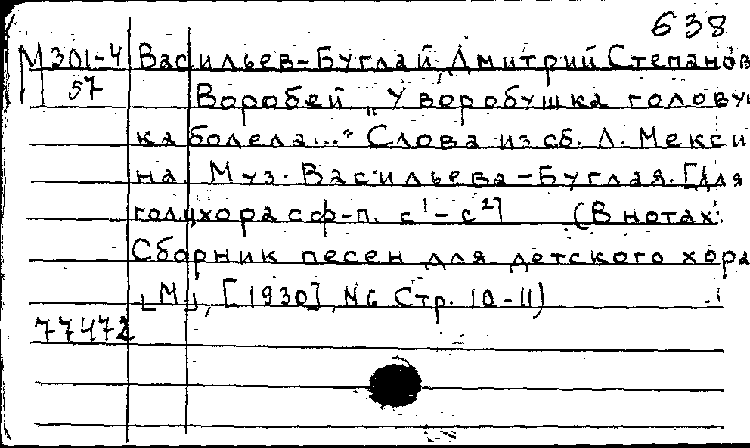 638
М 301-4 Васильев-Буглай, Дмитрий Степанов
57 Воробей „У воробушка голову
ка болела..." Слова из сб. Л. Мекси
на. Муз. Васильева-Буглая. [Для
гол. хора с ф-п. c¹ - c²] (В нотах:
Сборник песен для детского хора
[М], [1930], №6 Стр. 10-11)
77472